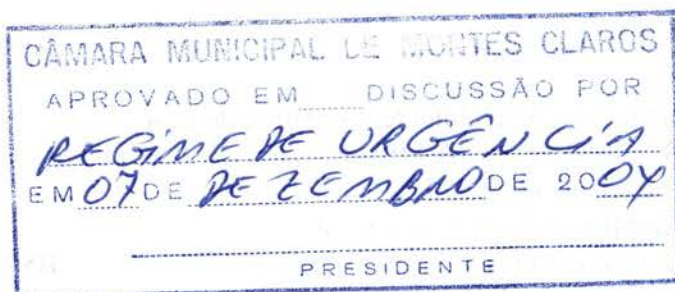 CÂMARA MUNICIPAL DE MONTES CLAROS
APROVADO EM DISCUSSÃO POR
REGIME DE URGÊNCIA
EM 07 DE DEZEMBRO DE 2004
PRESIDENTE